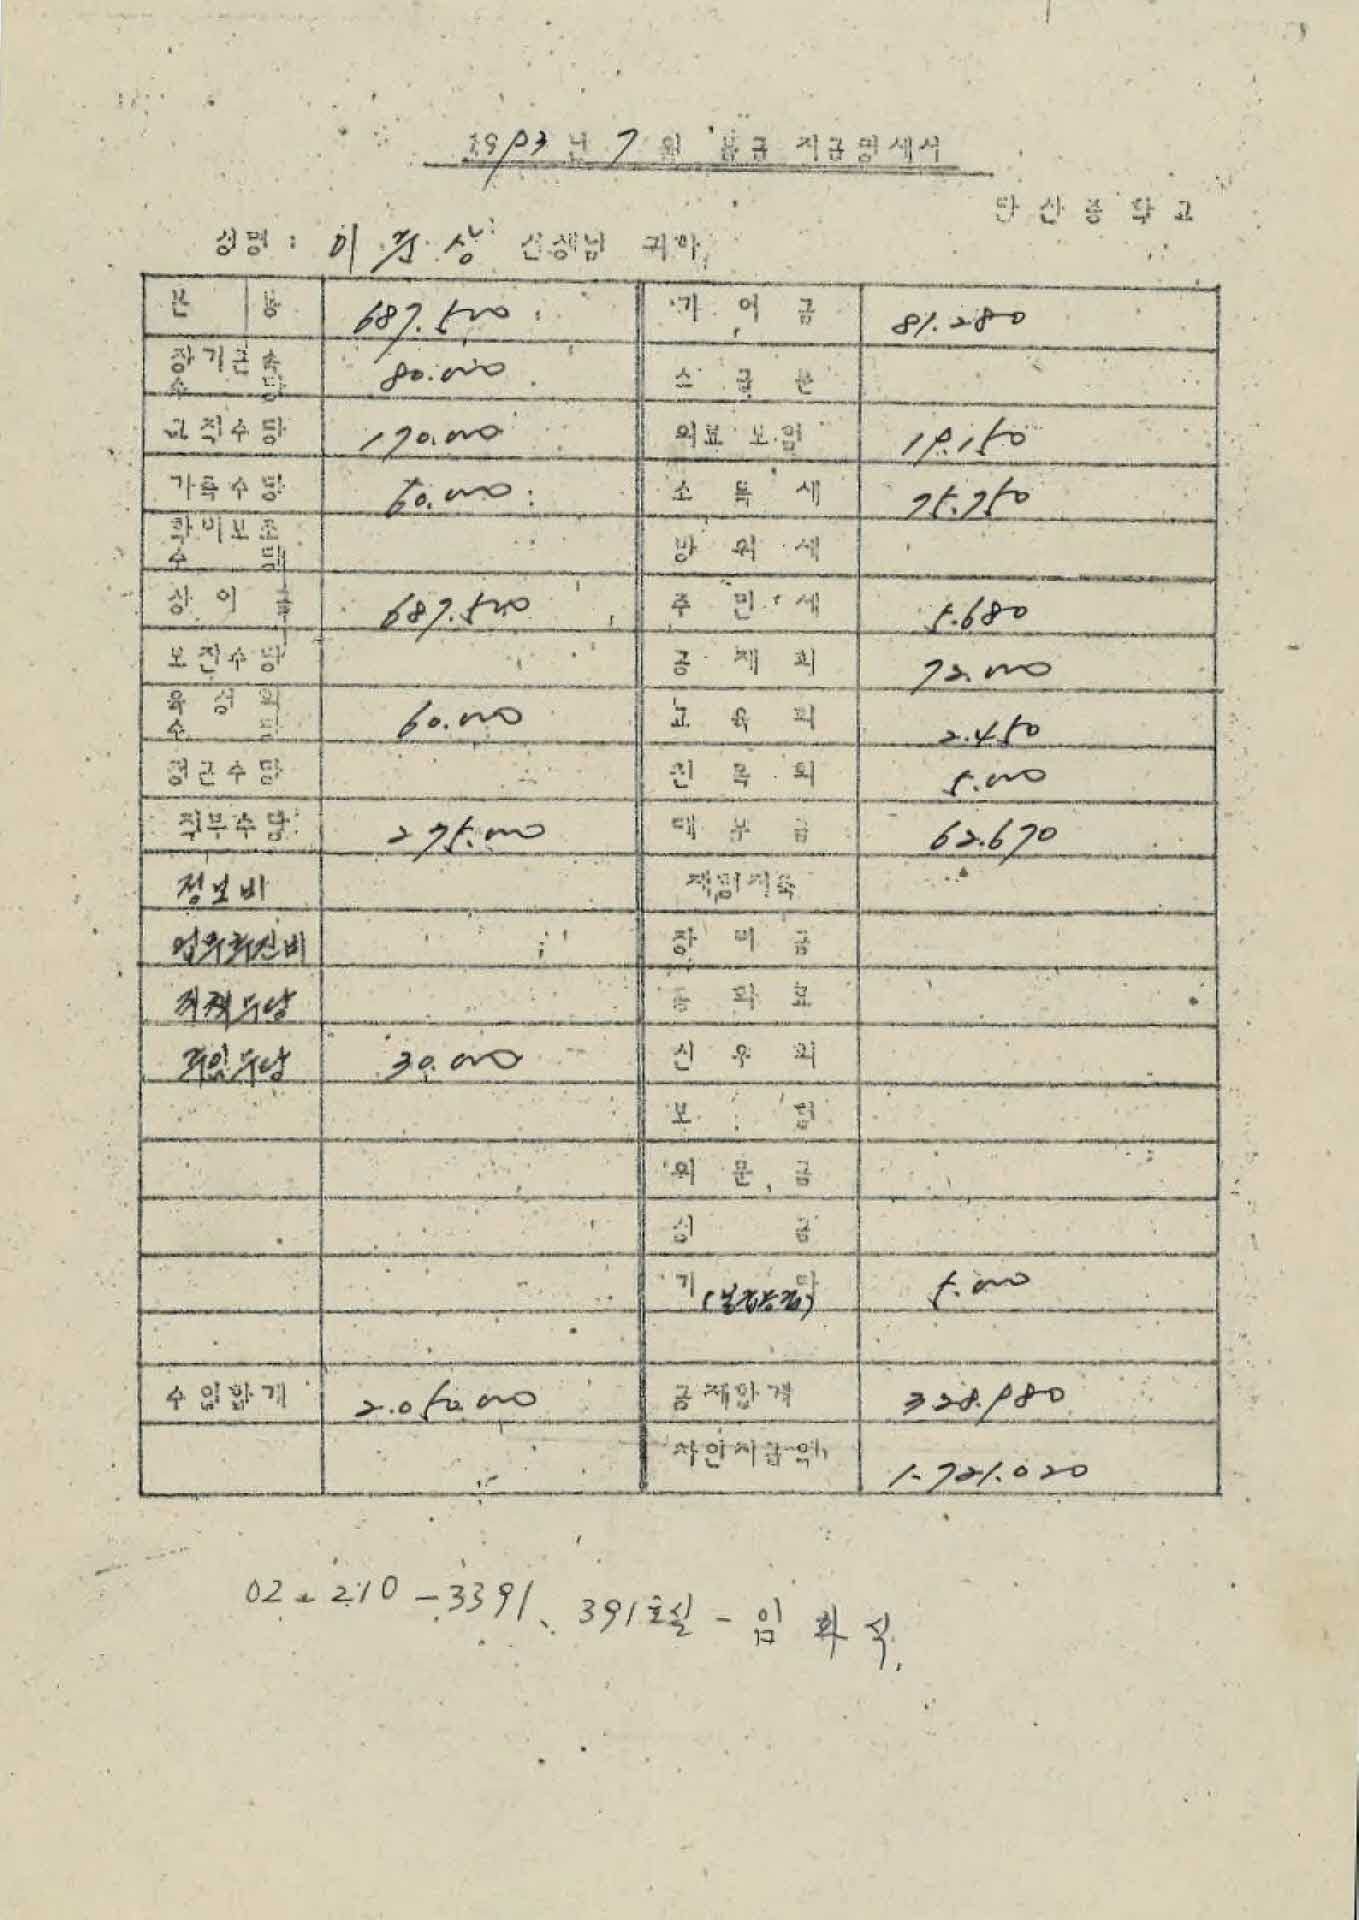 1993년 7월 봉급 지급명세서
단산중학교
성명 : 선생님 귀하
본 봉 687.500 기여금 81.280
장기근속수당 80.000 소급분
교직수당 170.000 의료보험 19.150
가족수당 60.000 소득세 75.750
학비보조수당 방위세
상여금 687.500 주민세 5.680
보전수당 공제회 72.000
육성회수당 60.000 교육회 2.450
정근수당 친목회 5.000
직무수당 275.000 대부금 62.670
정보비 재형저축
업무추진비 장미금
직책수당
주임수당 30.000 신우회
보험
위문금
성금
기타 5.000
수입합계 2.050.000 공제합계 328.980
차인지급액 1.721.020
02-210-3391, 391호실 - 임화식.